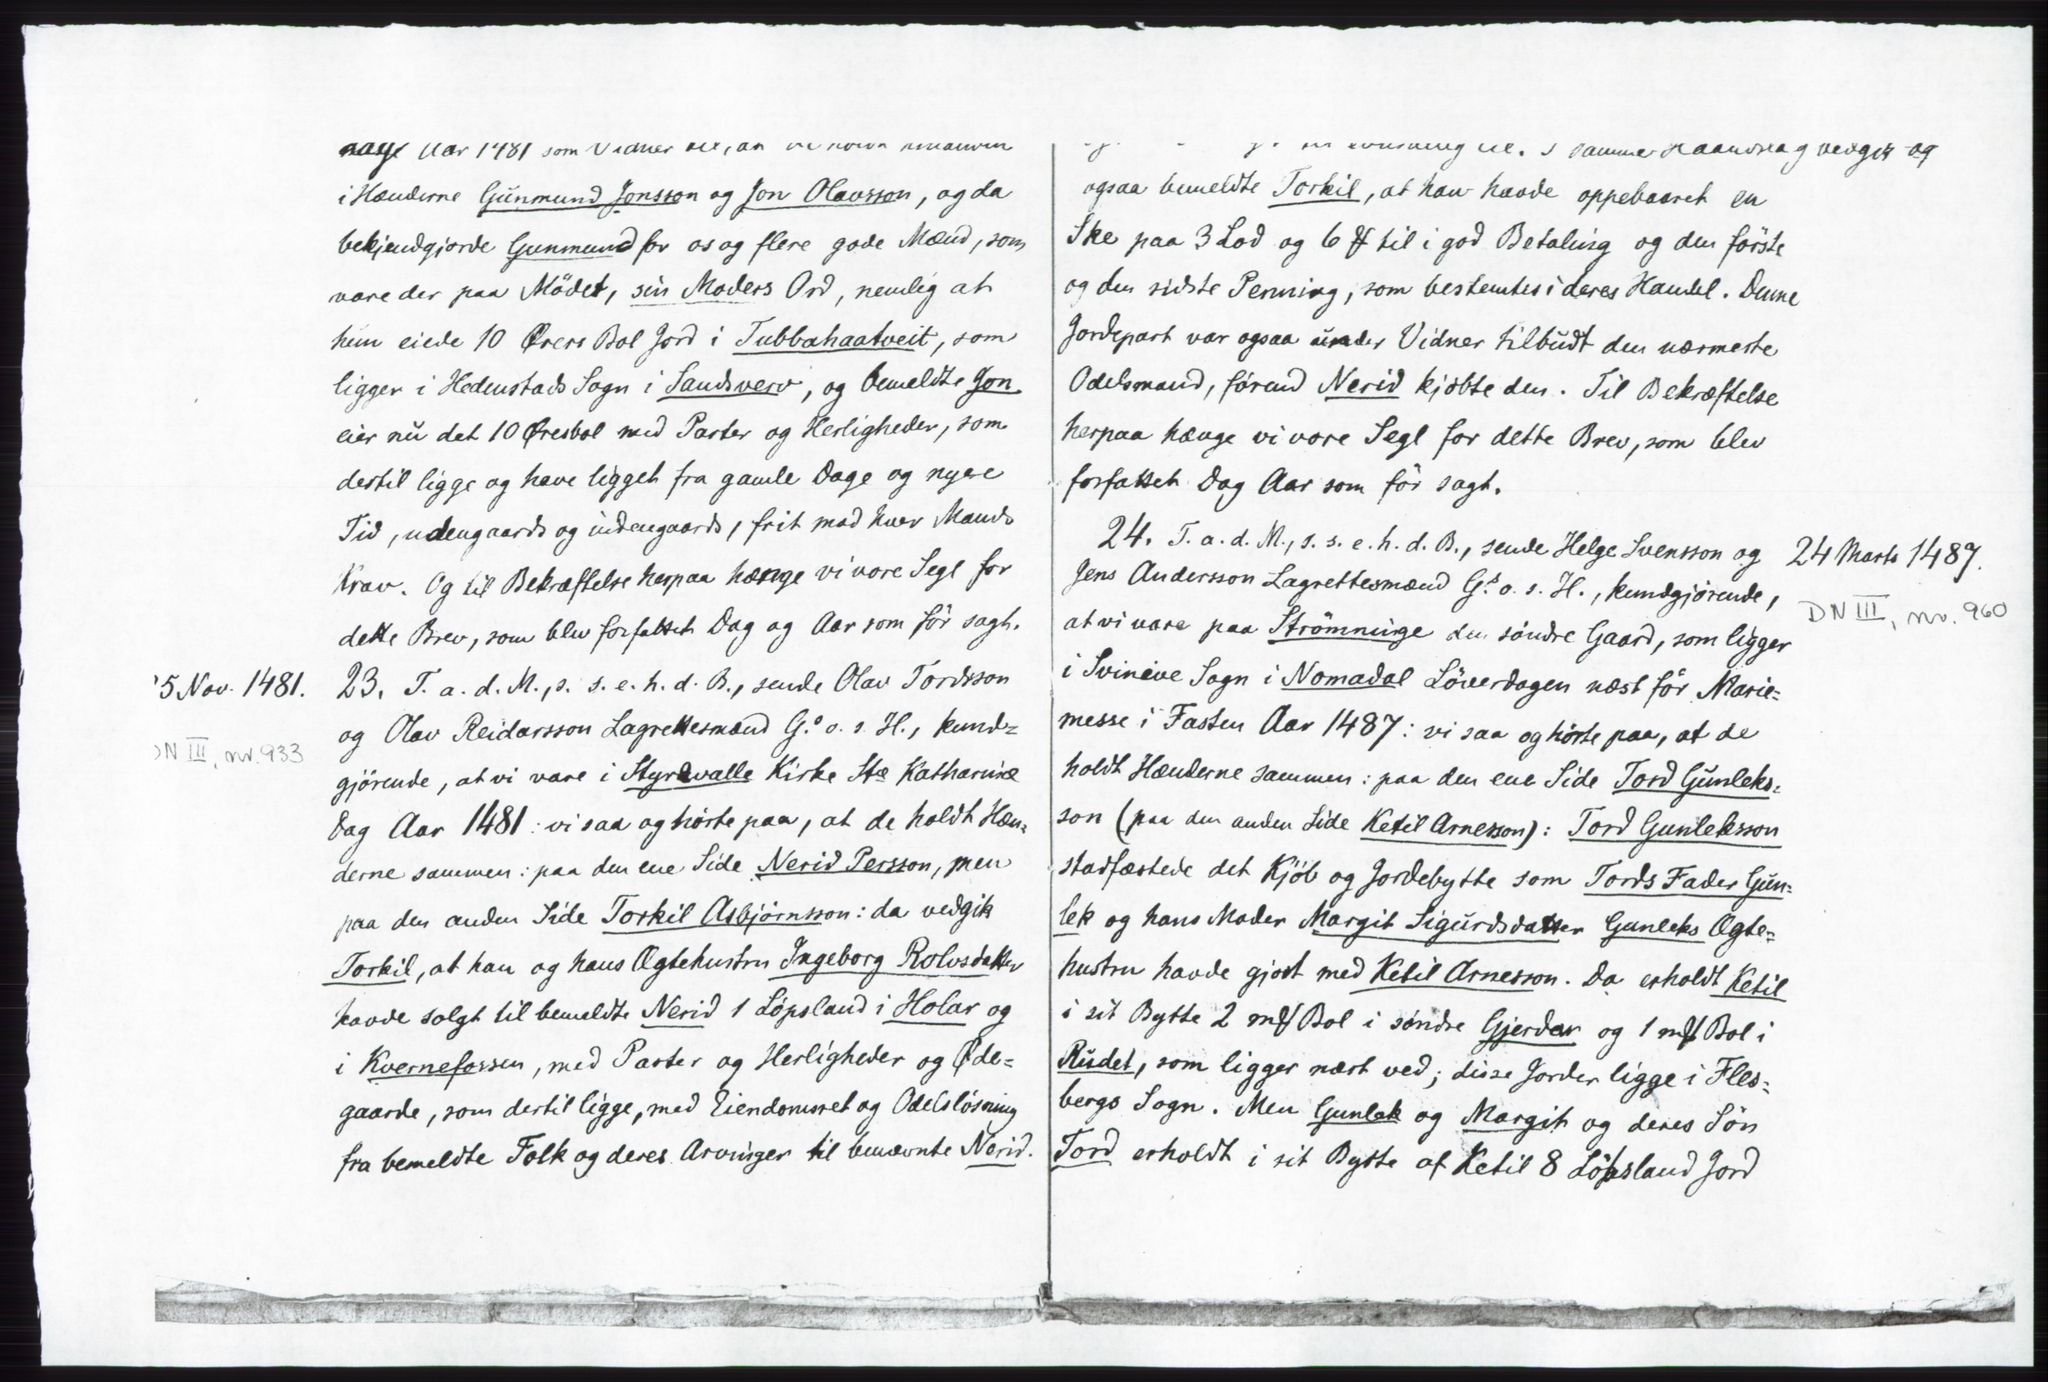 Aar 1481 som Vidner
i Hænderne Gunmund Jonsson og Jon Olavsson, og da
bekjendgjorde Gunmund for os og flere gode Mænd, som
vare der paa Mödet, sin Moders Ord, nemlig at
hun eiede 10 Örers Bol Jord i Tubbahaatveit, som
ligger i Hedenstads Sogn i Sandsverv, og bemeldte Jon
eier nu det 10 Öresbol med Parter og Herligheder, som
dertil ligge og have ligget fra gamle Dage og nyere
Tid, udengaards og indengaards, frit mod hver Mands
Krav. Og til Bekræftelse herpaa hænge vi vore Segl for
dette Brev, som blev forfattet Dag og Aar som för sagt.
5 Nov. 1481.
DN III, nr. 933
23. T. a. d. M., s. s. e. h. d. B., sende Olav Tordsson
og Olav Reidarsson Lagrettesmænd G.s o. s. H., kund=
gjörende, at vi vare i Styrevalle Kirke Stæ Katharinæ
Dag Aar 1481: vi saa og hörte paa, at de holdt Hæn=
derne sammen: paa den ene Side Nerid Persson, men
paa den anden Side Torkil Asbjörnsson: da vedgik
Torkil, at han og hans Ægtehustru Ingeborg Rolvsdatter
havde solgt til bemeldte Nerid 1 Löpsland i Holar og
i Kvernefossen, med Parter og Herligheder og Öde=
gaarde, som dertil ligge, med Eiendomsret og Odelslösning
fra bemeldte Folk og deres Arvinger til benævnte Nerid.
samme Haandslag vedgik og
ogsaa bemeldte Torkil, at han havde oppebaaret en
Ske paa 3 Lod og 6 ₰ til i god Betaling og den förste
og den sidste Penning, som bestemtes i deres Handel. Denne
Jordepart var ogsaa under Vidner tilbudt den nærmeste
Odelsmand, förend Nerid kjöbte den. Til Bekræftelse
herpaa hænge vi vore Segl for dette Brev, som blev
forfattet Dag Aar som för sagt.
24. T. a. d. M., s. s. e. h. d. B., sende Helge Svensson og
Jens Andersson Lagrettesmænd G.s o. s. H., kundgjörende,
at vi vare paa Strömninge den söndre Gaard, som ligger
i Svineve Sogn i Nomadal Löverdagen næst för Marie=
messe i Fasten Aar 1487: vi saa og hörte paa, at de
holdt Hænderne sammen: paa den ene Side Tord Gunleks=
son (paa den anden Side Ketil Arnesson): Tord Gunleksson
stadfæstede det Kjöb og Jordebytte som Tords Fader Gun=
lek og hans Moder Margit Sigurdsdatter Gunleks Ægte=
hustru havde gjort med Ketil Arnesson. Da erholdt Ketil
i sit Bytte 2 m₰ Bol i söndre Gjerdar og 1 m₰ Bol i
Rudet, som ligger næst ved; disse Jorder ligge i Fles=
bergs Sogn. Men Gunlek og Margit og deres Sön
Tord erholdt i sit Bytte af Ketil 8 Löpsland Jord
24 Marts 1487.
DN III, nr. 960